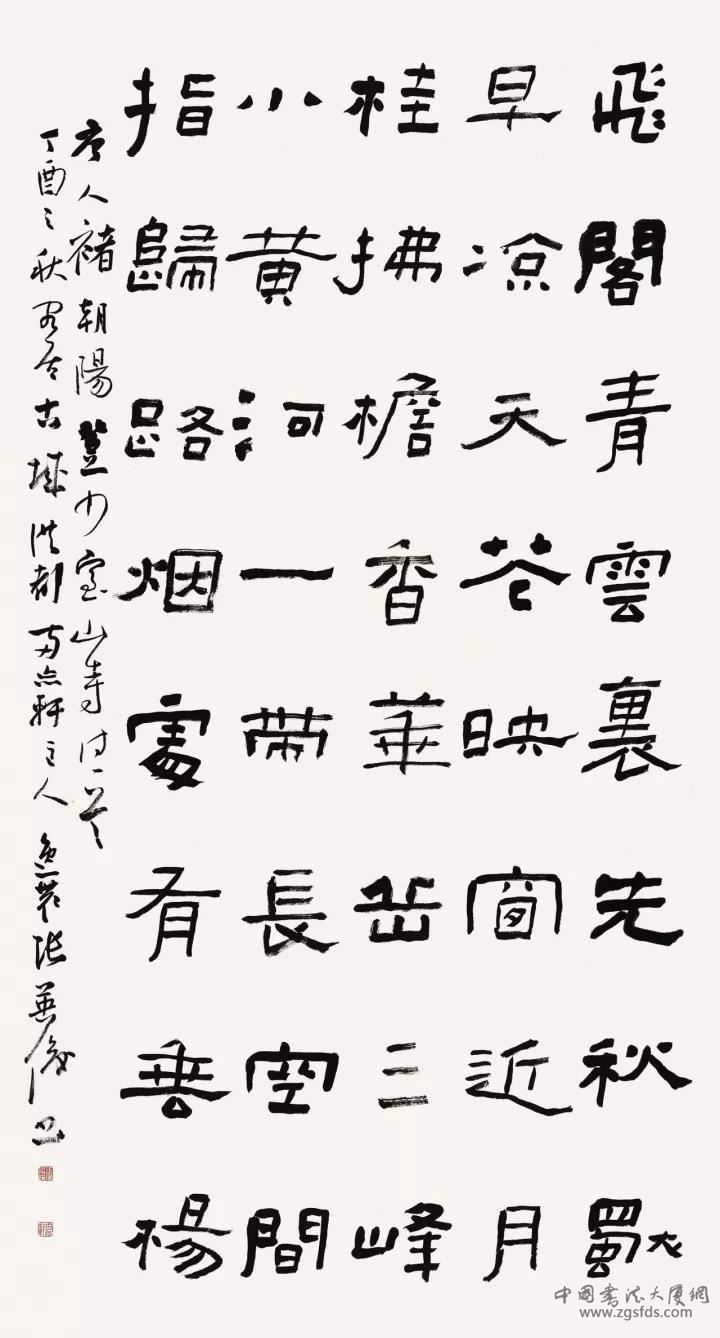 飛閣青雲裏先秋獨
早凉天花映窗近月
桂拂檐香華岳三峰
小黄河一帶長空間
指歸路烟處有垂楊
唐人褚朝陽登少室山寺詩一首
丁酉之秋居古城洪都軒主人張英俊书
中國書法大廈網
www.zgsfds.com